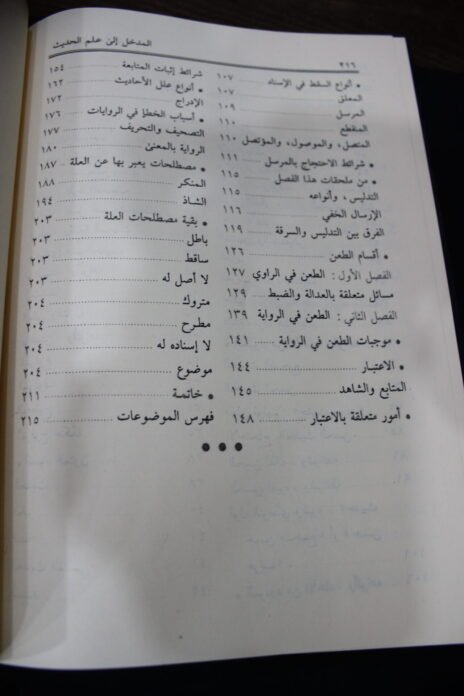 ٢١٦
المدخل إلى علم الحديث
• أنواع السقط في الإسناد ١٠٧
المعلق ١٠٧
المرسل ١٠٩
المنقطع ١١٠
المتصل، والموصول، والمؤتصل ١١٠
• شرائط الاحتجاج بالمرسل ١١١
• من ملحقات هذا الفصل ١١٥
التدليس، وأنواعه ١١٥
الإرسال الخفي ١١٦
الفرق بين التدليس والسرقة ١١٩
• أقسام الطعن ١٢٦
الفصل الأول: الطعن في الراوي ١٢٧
مسائل متعلقة بالعدالة والضبط ١٢٩
الفصل الثاني: الطعن في الرواية ١٣٩
• موجبات الطعن في الرواية ١٤١
• الاعتبار ١٤٤
المتابع والشاهد ١٤٥
• أمور متعلقة بالاعتبار ١٤٨
شرائط إثبات المتابعة ١٥٤
• أنواع علل الأحاديث ١٦٢
الإدراج ١٧٢
• أسباب الخطإ في الروايات ١٧٦
التصحيف والتحريف ١٧٧
الرواية بالمعنى ١٨٠
• مصطلحات يعبر بها عن العلة ١٨٧
المنكر ١٨٨
الشاذ ١٩٤
• بقية مصطلحات العلة ٢٠٣
باطل ٢٠٣
ساقط ٢٠٣
لا أصل له ٢٠٣
متروك ٢٠٤
مطرح ٢٠٤
لا إسناده له ٢٠٤
موضوع ٢٠٤
• خاتمة ٢١١
فهرس الموضوعات ٢١٥